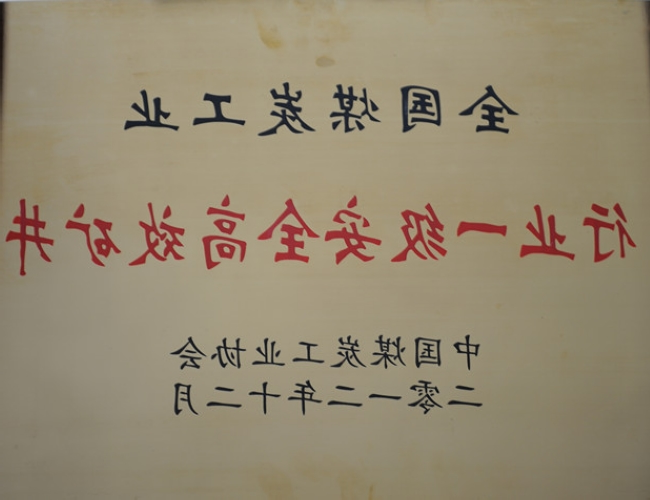 全国煤炭工业
行业一级安全高效矿井
中国煤炭工业协会
二零一二年十二月